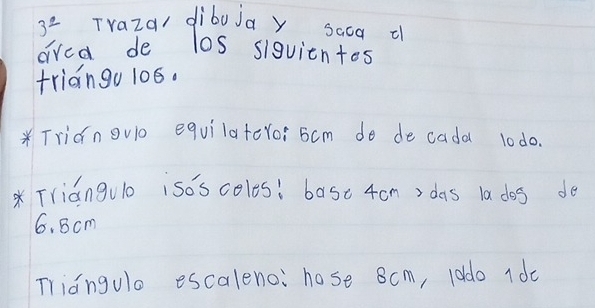 3º Trazar dibuja y saca el
área de los siguientes
triángulos.
* Triángulo equilatero: 5cm de de cada lado.
* Triángulo isósceles: base 4cm, dos lados de
6.5cm
Triángulo escaleno: base 8cm, lado 1 de